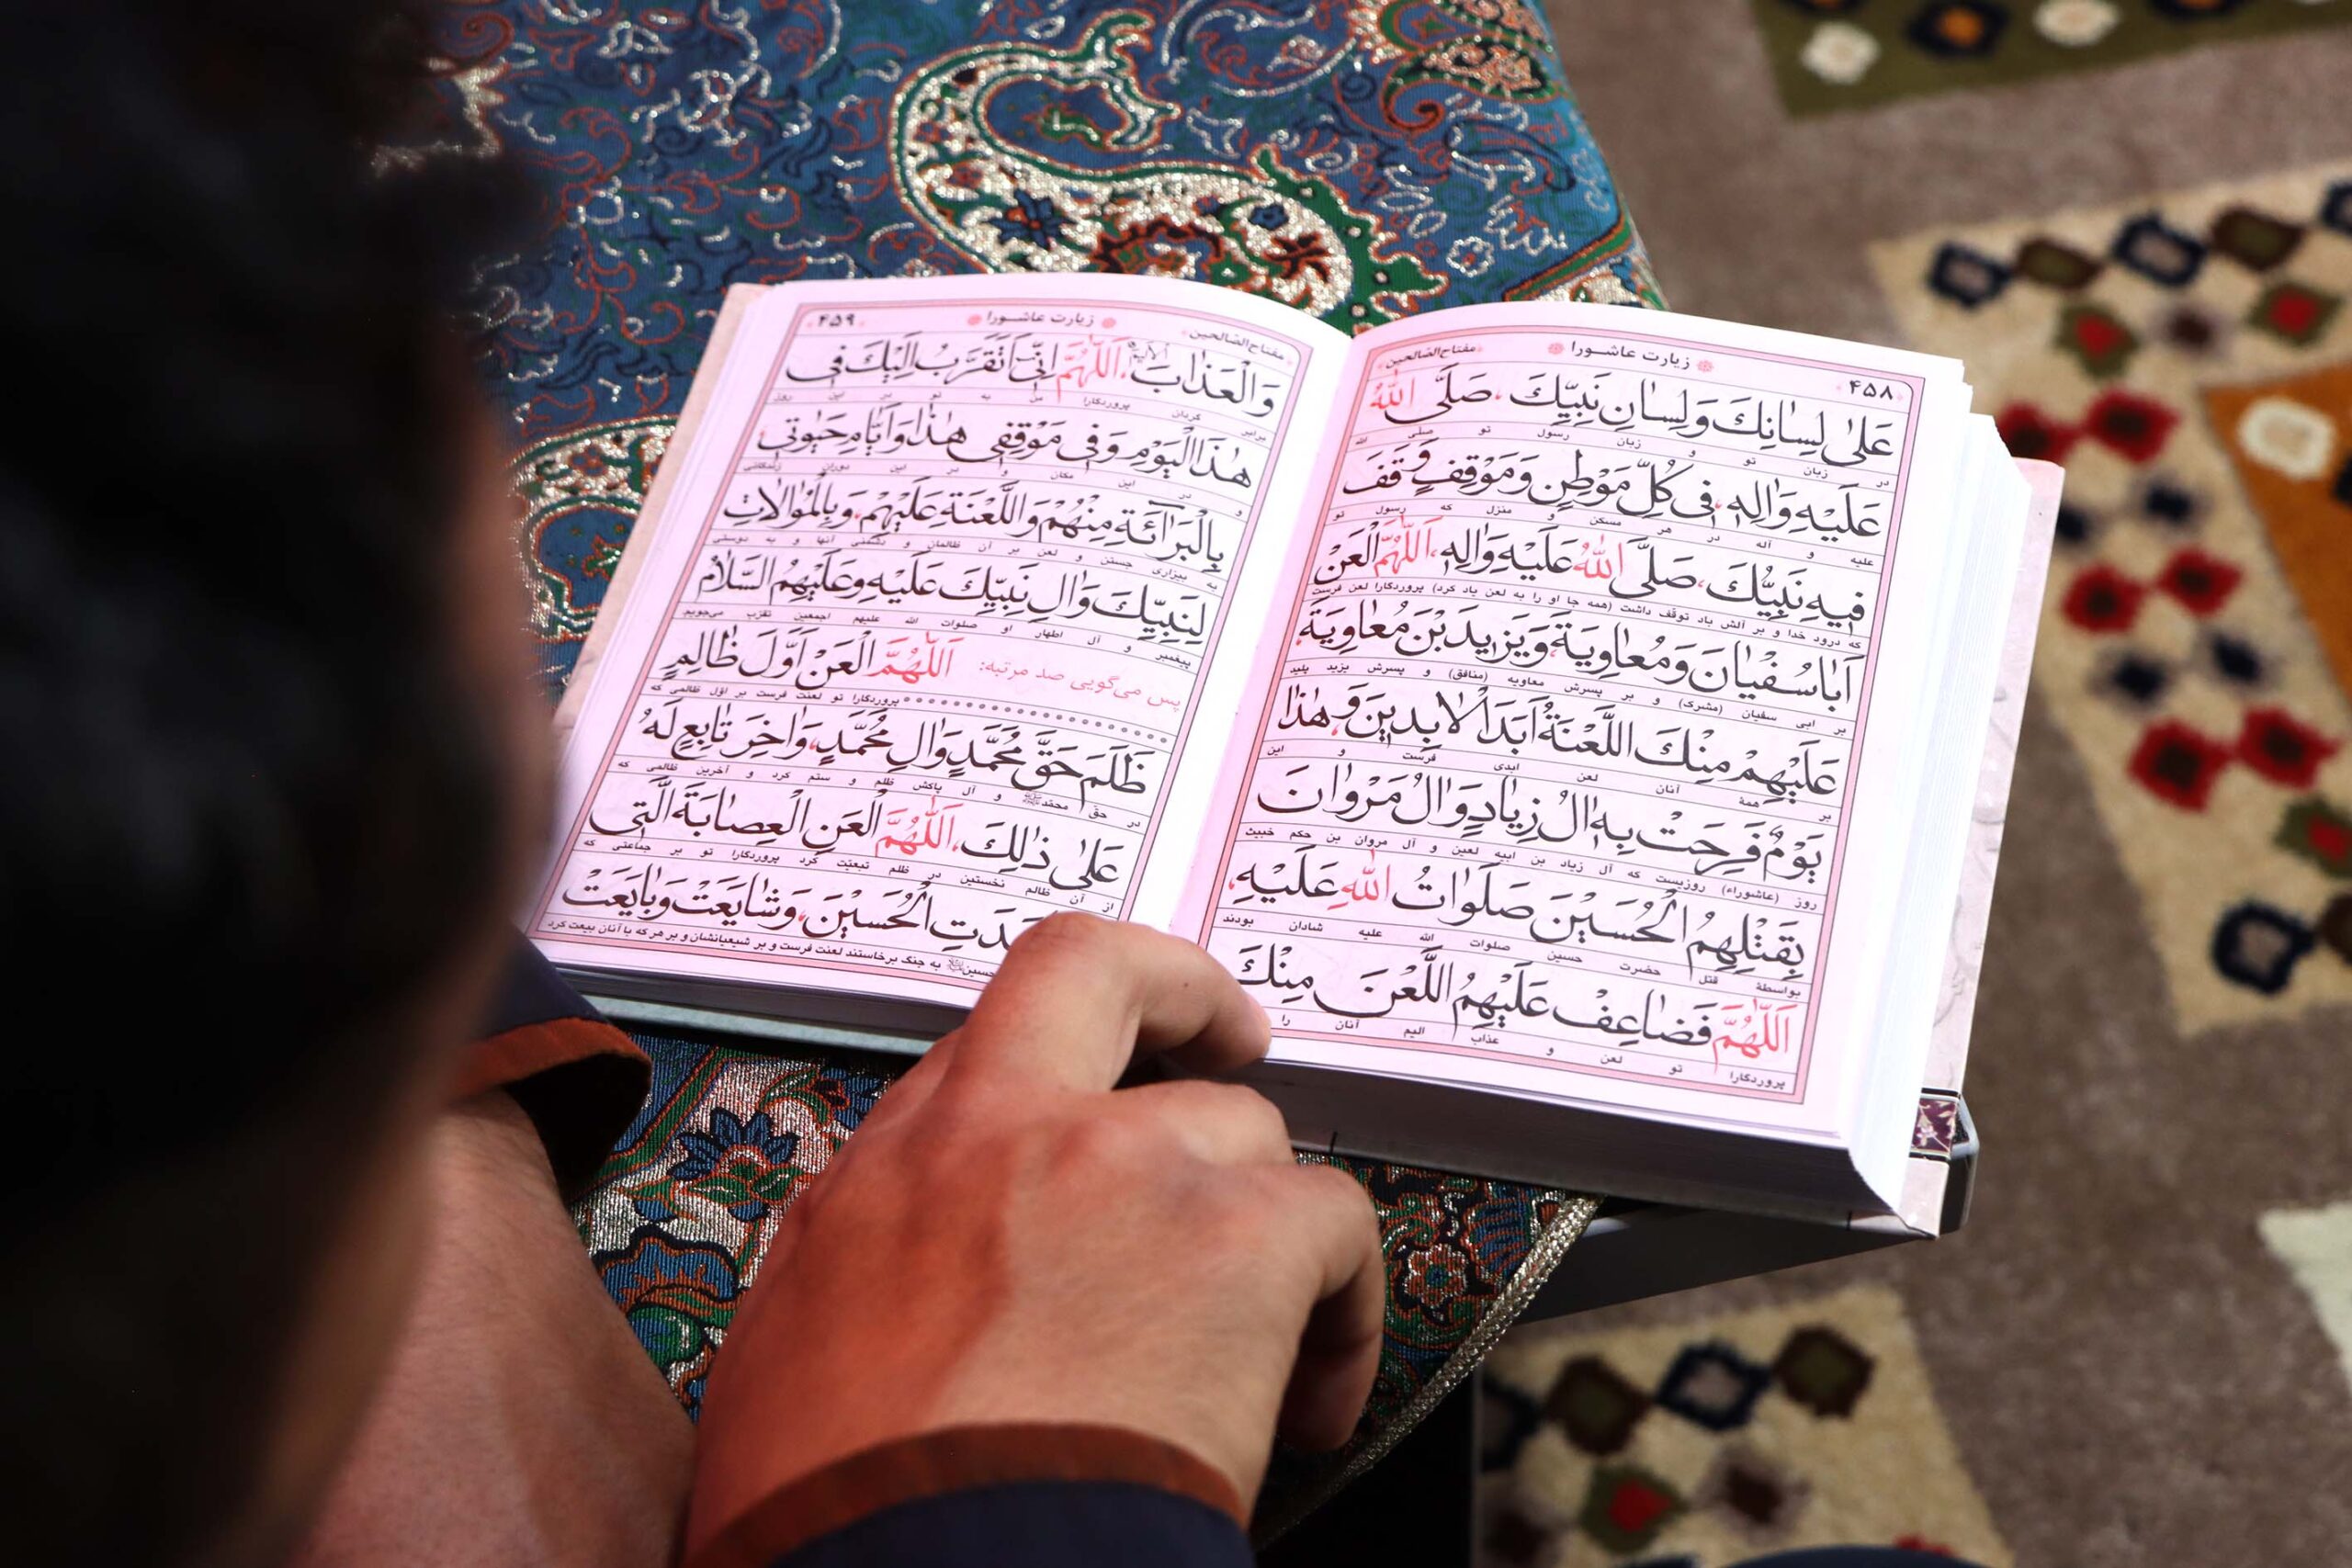 ۴۵۸
زیارت عاشورا
مفتاح‌الصّالحین
عَلىٰ لِسٰانِكَ وَ لِسٰانِ نَبِيِّكَ، صَلَّى اللّٰهُ
در زبان تو و زبان رسول تو صلی الله
عَلَيْهِ وَاٰلِهِ، فى كُلِّ مَوْطِنٍ وَ مَوْقِفٍ وَقَفَ
علیه و آله در هر مسکن و منزل که رسول تو
فيهِ نَبِيُّكَ، صَلَّى اللّٰهُ عَلَيْهِ وَاٰلِهِ، اَللّٰهُمَّ الْعَنْ
که درود خدا و بر آلش باد توقف داشت (همه جا او را به لعن یاد کرد) پروردگارا لعن فرست
اَبٰا سُفْيٰانَ وَ مُعٰاوِيَةَ وَ يَزيدَ بْنَ مُعٰاوِيَةَ،
بر ابی سفیان (مشرک) و بر پسرش معاویه (منافق) و پسرش یزید پلید
عَلَيْهِمْ مِنْكَ اللَّعْنَةُ اَبَدَ الْاٰبِدينَ، وَ هٰذٰا
بر همهٔ آنان لعن ابدی فرست و این
يَوْمٌ فَرِحَتْ بِهِ اٰلُ زِيٰادٍ وَ اٰلُ مَرْوٰانَ
روز (عاشوراء) روزیست که آل زیاد بن ابیه لعین و آل مروان بن حکم خبیث
بِقَتْلِهِمُ الْحُسَيْنَ صَلَوٰاتُ اللّٰهِ عَلَيْهِ،
بواسطهٔ قتل حضرت حسین صلوات الله علیه شادان بودند
اَللّٰهُمَّ فَضٰاعِفْ عَلَيْهِمُ اللَّعْنَ مِنْكَ
پروردگارا تو لعن و عذاب الیم آنان را
مفتاح‌الصّالحین
زیارت عاشورا
۴۵۹
وَالْعَذٰابَ الْاَليمَ، اَللّٰهُمَّ اِنّى اَتَقَرَّبُ اِلَيْكَ فى
برابر گردان پروردگارا من به تو در این روز
هٰذَا الْيَوْمِ وَ فى مَوْقِفى هٰذٰا وَ اَيّٰامِ حَيٰوتى،
و در این مکان و در این دوران زندگانی
بِالْبَرٰائَةِ مِنْهُمْ وَاللَّعْنَةِ عَلَيْهِمْ، وَ بِالْمُوٰالاتِ
به بیزاری جستن و لعن بر آن ظالمان و دشمنی آنها و به دوستی
لِنَبِيِّكَ وَ اٰلِ نَبِيِّكَ عَلَيْهِ وَ عَلَيْهِمُ السَّلاٰمُ
پیغمبر و آل اطهار او صلوات الله علیهم اجمعین تقرّب می‌جویم
پس می‌گویی صد مرتبه: اَللّٰهُمَّ الْعَنْ اَوَّلَ ظٰالِمٍ
پروردگارا تو لعنت فرست بر اوّل ظالمی که
ظَلَمَ حَقَّ مُحَمَّدٍ وَ اٰلِ مُحَمَّدٍ، وَ اٰخِرَ تٰابِعٍ لَهُ
در حق محمد ﷺ و آل پاکش ظلم و ستم کرد و آخرین ظالمی که
عَلىٰ ذٰلِكَ، اَللّٰهُمَّ الْعَنِ الْعِصٰابَةَ الَّتى
از آن ظالم نخستین در ظلم تبعیّت کرد پروردگارا تو بر جماعتی که
الْحُسَيْنَ، وَ شٰايَعَتْ وَ بٰايَعَتْ
به جنگ برخاستند لعنت فرست و بر شیعیانشان و بر هر که با آنان بیعت کرد